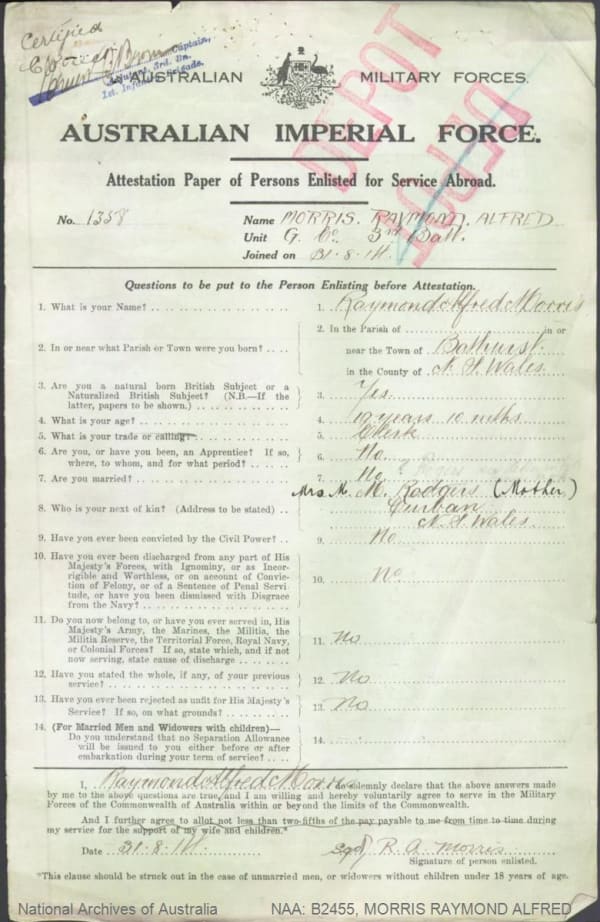 Certified
Captain,
Adjutant, 3rd. Bn.
1st. Infantry Brigade.
AUSTRALIAN MILITARY FORCES.
DEPOT
DEPOT
AUSTRALIAN IMPERIAL FORCE.
Attestation Paper of Persons Enlisted for Service Abroad.
No. 1358 Name MORRIS. RAYMOND. ALFRED
Unit G. Co. 3rd Batt.
Joined on 31.8.14.
Questions to be put to the Person Enlisting before Attestation.
1. What is your Name? 1. Raymond Alfred Morris
2. In or near what Parish or Town were you born? 2. In the Parish of in or
near the Town of Bathurst
in the County of N. S. Wales
3. Are you a natural born British Subject or a
Naturalized British Subject? (N.B.—If the
latter, papers to be shown.) 3. Yes.
4. What is your age? 4. 19 years 10 mths.
5. What is your trade or calling? 5. Clerk
6. Are you, or have you been, an Apprentice? If so,
where, to whom, and for what period? 6. No
7. Are you married? 7. No
8. Who is your next of kin? (Address to be stated) Mrs M. M. Rodgers (Mother)
Curban
N. S. Wales
9. Have you ever been convicted by the Civil Power? 9. No
10. Have you ever been discharged from any part of His
Majesty's Forces, with Ignominy, or as Incor-
rigible and Worthless, or on account of Convic-
tion of Felony, or of a Sentence of Penal Servi-
tude, or have you been dismissed with Disgrace
from the Navy? 10. No
11. Do you now belong to, or have you ever served in, His
Majesty's Army, the Marines, the Militia, the
Militia Reserve, the Territorial Force, Royal Navy,
or Colonial Forces? If so, state which, and if not
now serving, state cause of discharge 11. No
12. Have you stated the whole, if any, of your previous
service? 12. No
13. Have you ever been rejected as unfit for His Majesty's
Service? If so, on what grounds? 13. No
14. (For Married Men and Widowers with children)—
Do you understand that no Separation Allowance
will be issued to you either before or after
embarkation during your term of service? 14.
I, Raymond Alfred Morris do solemnly declare that the above answers made
by me to the above questions are true, and I am willing and hereby voluntarily agree to serve in the Military
Forces of the Commonwealth of Australia within or beyond the limits of the Commonwealth.
And I further agree to allot not less than two-fifths of the pay payable to me from time to time during
my service for the support of my wife and children.*
Date 31.8.14. Sgd R. A. Morris
Signature of person enlisted.
*This clause should be struck out in the case of unmarried men, or widowers without children under 18 years of age.
National Archives of Australia NAA: B2455, MORRIS RAYMOND ALFRED